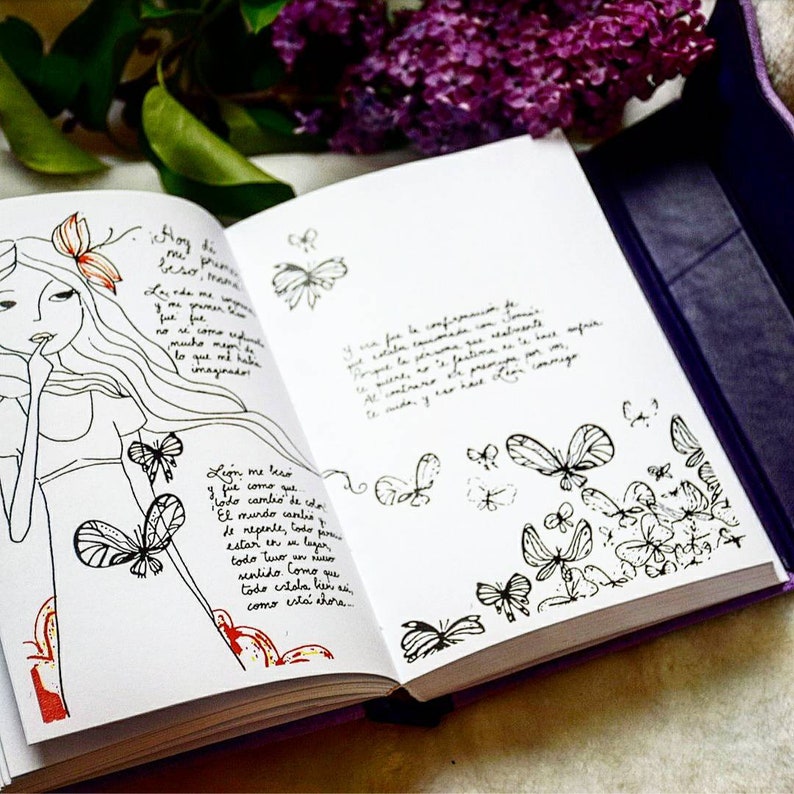 ¡Hoy di
mi primer
beso, mamá!
y mi primer beso
fue fue
no se cómo explicarlo,
¡mucho mejor de
lo que me había
imaginado!
León me besó
y fue como que...
¡todo cambió de color!
El mundo cambió y
de repente, todo pareció
estar en su lugar,
todo tuvo un nuevo
sentido. Como que
todo estaba bien así,
como está ahora...
Y esa fue la confirmación de
que estaba equivocada con Tomás.
Porque la persona que realmente
te quiere, no te lastima ni te hace sufrir.
Al contrario. Se preocupa por vos,
te cuida, y eso hace León conmigo